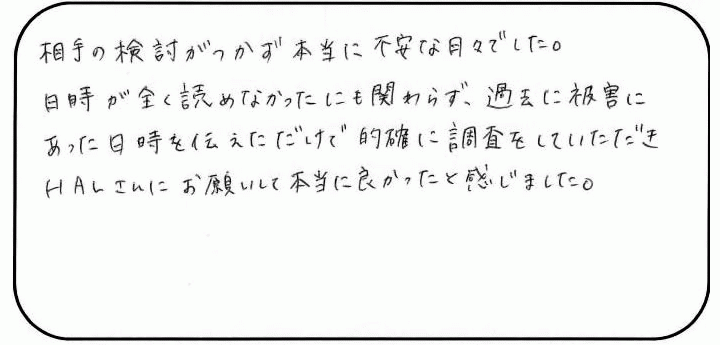 相手の検討がつかず本当に不安な日々でした。
日時が全く読めなかったにも関わらず、過去に被害に
あった日時を伝えただけで的確に調査をしていただき
HALさんにお願いして本当に良かったと感じました。